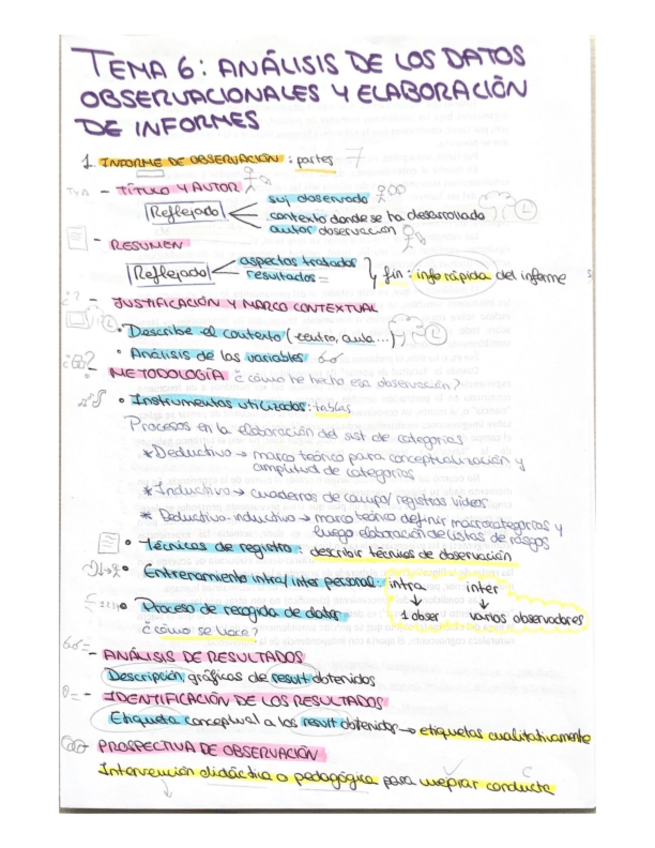 TEMA 6: ANÁLISIS DE LOS DATOS
OBSERVACIONALES Y ELABORACIÓN
DE INFORMES
1. INFORME DE OBSERVACIÓN: partes 7
- TÍTULO Y AUTOR
Reflejado
suj observado
contexto donde se ha desarrollado
autor observación
- RESUMEN
Reflejado
aspectos tratados
resultados
fin: info rápida del informe
- JUSTIFICACIÓN Y MARCO CONTEXTUAL
• Describe el contexto (centro, aula...)
• Análisis de las variables
- METODOLOGÍA ¿cómo he hecho esa observación?
• Instrumentos utilizados: tablas
Procesos en la elaboración del sist de categorías
* Deductivo → marco teórico para conceptualización y
amplitud de categorías
* Inductivo → cuadernos de campo/ registros videos
* Deductivo-inductivo → marco teórico definir macrocategorías y
luego elaboración de listas de rasgos
• Técnicas de registro: describir técnicas de observación
• Entrenamiento intra/inter personal: intra inter
• Proceso de recogida de datos 1 obser varios observadores
¿cómo se hace?
- ANÁLISIS DE RESULTADOS
Descripción, gráficas de result obtenidos
- IDENTIFICACIÓN DE LOS RESULTADOS
Etiqueta conceptual a los result obtenidos → etiquetas cualitativamente
PROSPECTIVA DE OBSERVACIÓN
Intervención didáctica o pedagógica para mejorar conducta